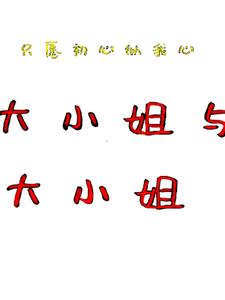 只愿初心似我心
大小姐与
大小姐